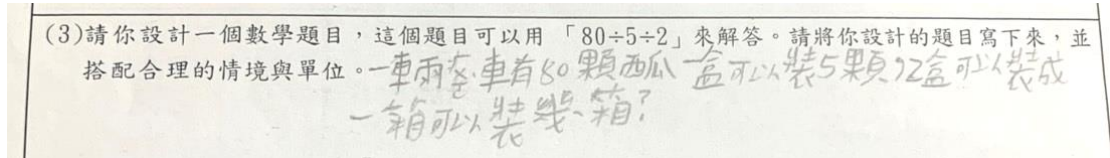 (3)請你設計一個數學題目，這個題目可以用「80÷5÷2」來解答。請將你設計的題目寫下來，並
搭配合理的情境與單位。一車有80顆西瓜一盒可以裝5顆，2盒可以裝成
一箱可以裝幾箱？